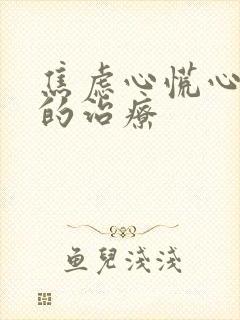 焦虑心慌心
的治疗
鱼儿浅浅